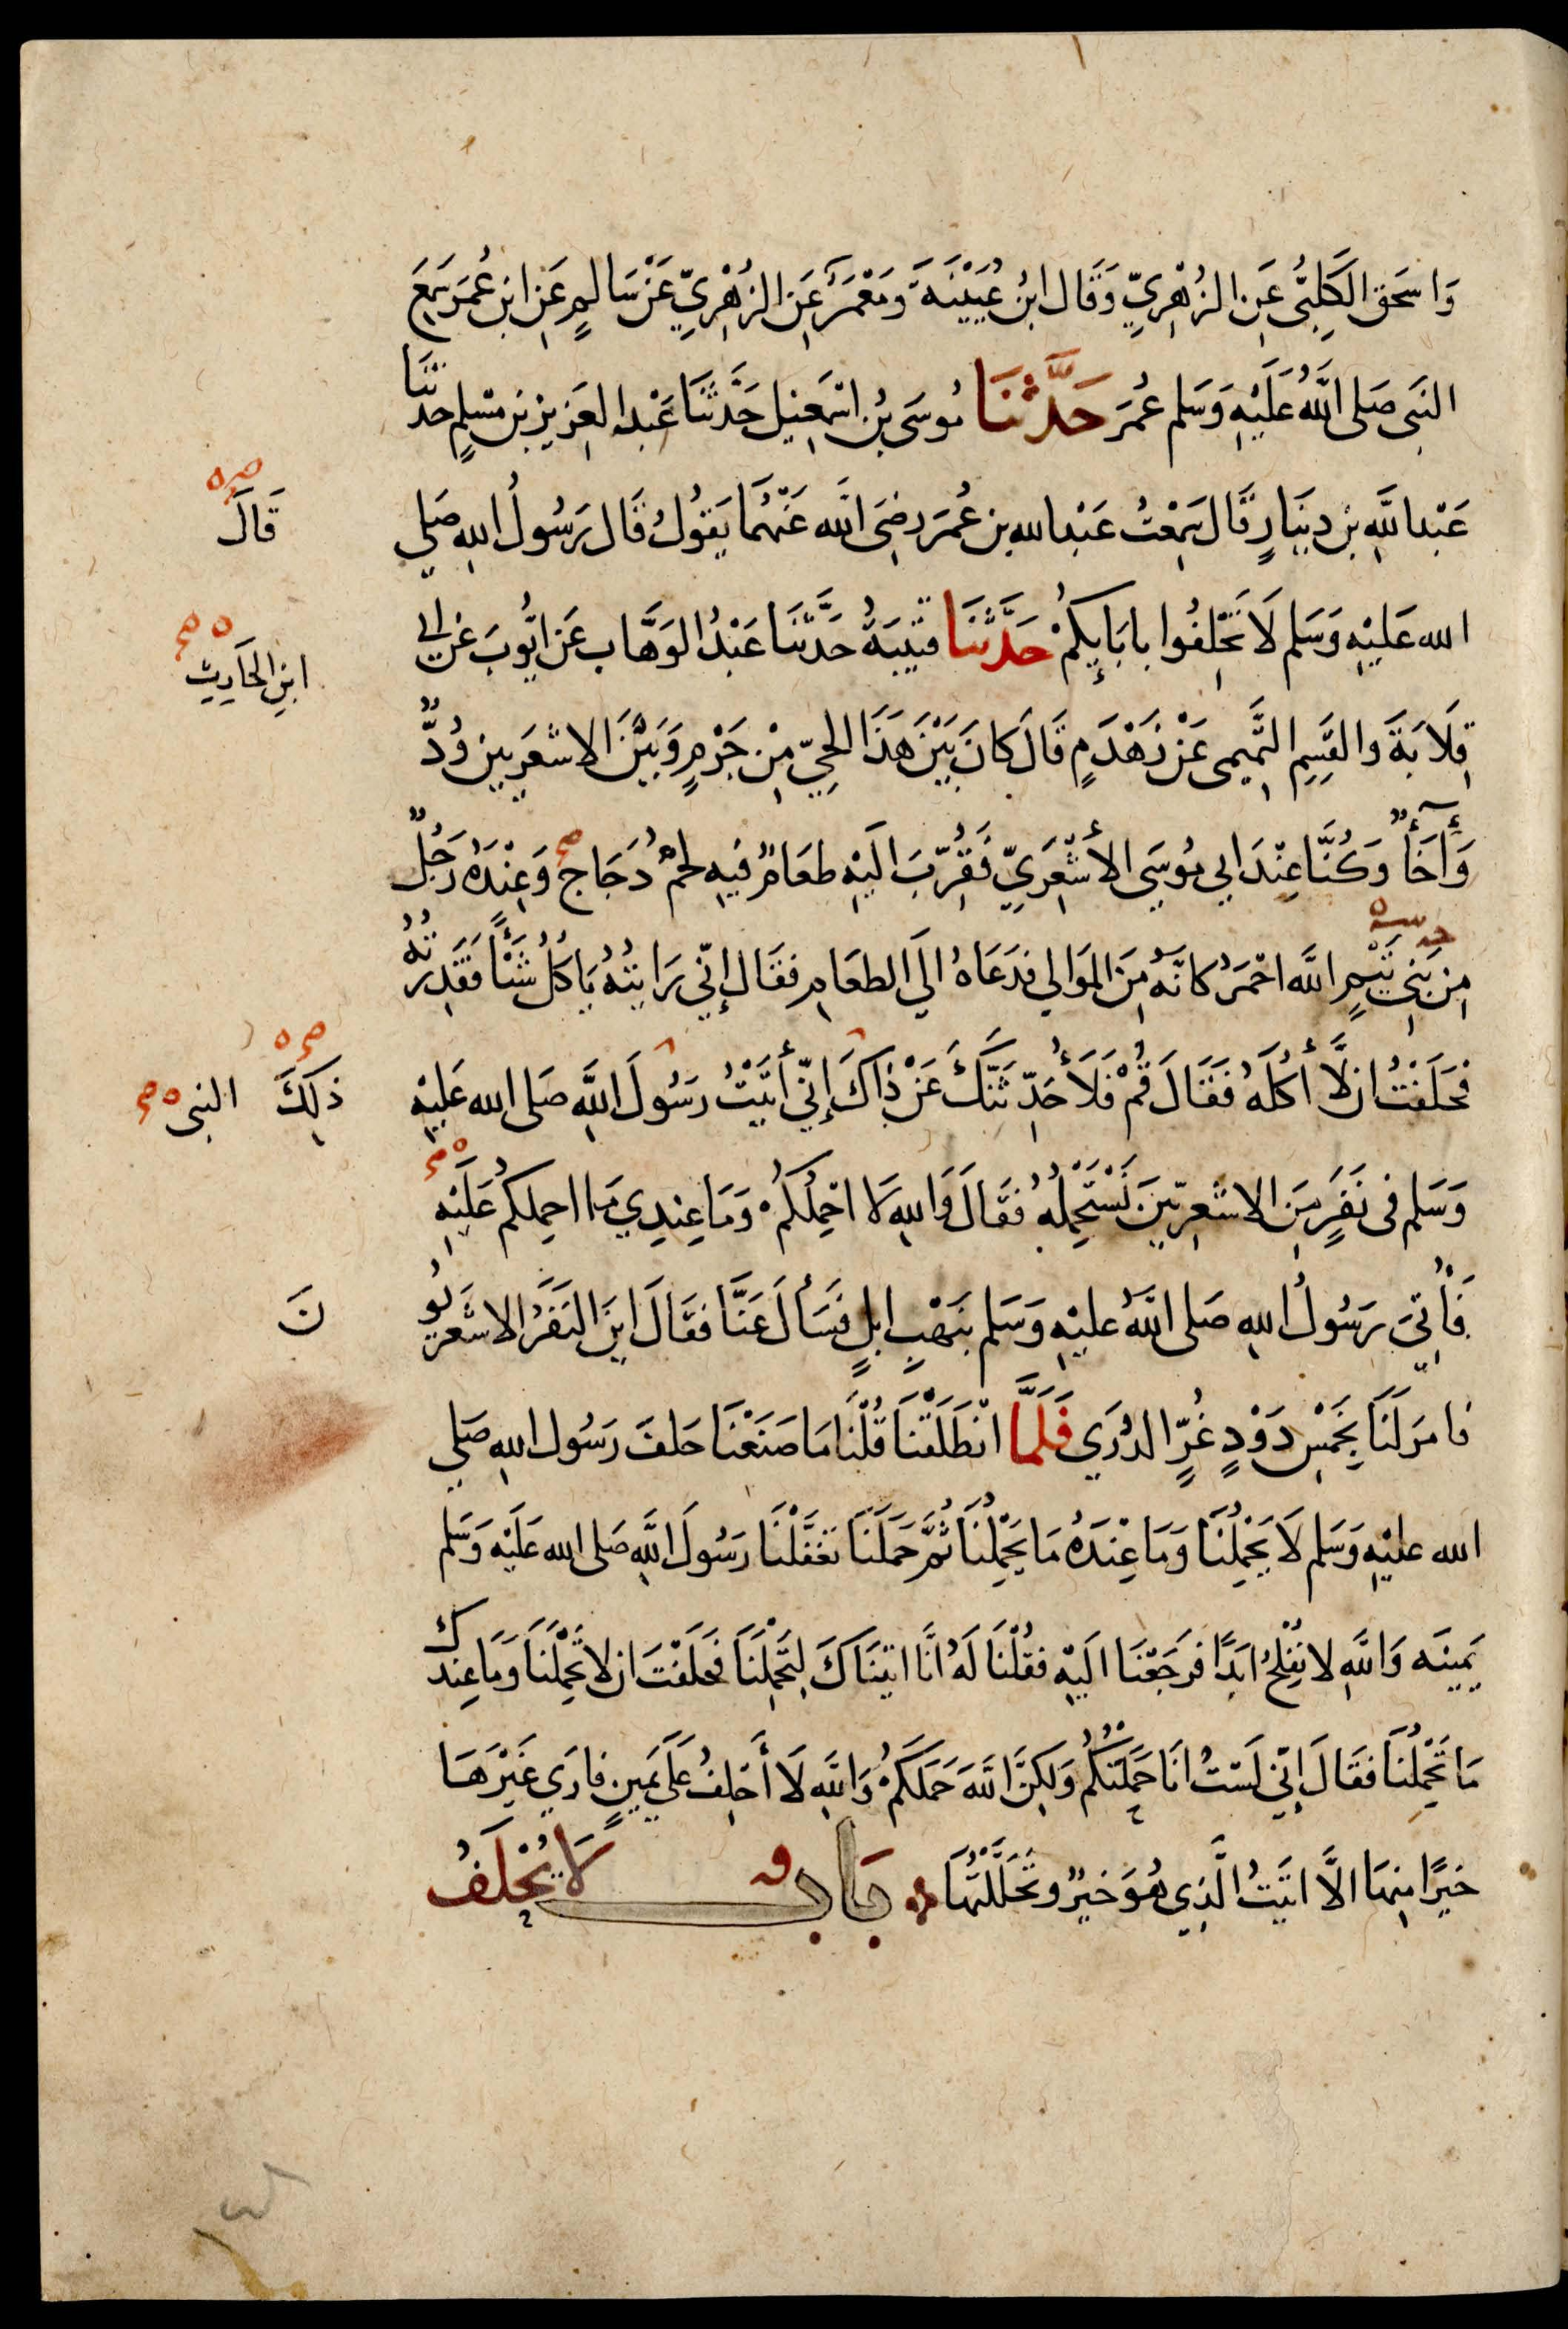 وَاِسحَق الكَلبِىُّ عَنِ الزُهْرِيّ وَقَال ابنُ عُيَيْنَةَ وَمَعْمَرٌ عَنِ الزُهْرِيِّ عَنْ سَالِمٍ عَنِ ابن عُمَرَ سَمِعَ
النَبى صَلى اللَّهُ عَلَيْهِ وَسَلم عُمَرَ حَدَّثنَا مُوسَى بنُ اسْمَعِيل حَدَّثَنَا عَبْدُ العَزيز بن مسْلمٍ حدثنَا
عَبْدُ اللَّهِ بن دِينَارٍ قَال سَمِعْتُ عَبْدَ الله بن عُمَرَ رضِىَ الله عَنْهُمَا يَقوُلُ قَال رَسُولُ اللهِ صَلى
قَالَ
الله عَليْهِ وَسَلم لَا تَحْلِفُوا بابَايِكُمْ حَدَّثنَا قتَيبَةُ حَدَّثنَا عَبْدُ الوَهَّاب عَن ايُّوبَ عَن ابى
ابنِ الحَارِثِ
قِلَابَةَ وَالقَسِمِ التَّمِيمى عَنْ زَهْدَمٍ قَالَ كَانَ بَيْنَ هَذَا الحَيِّ مِنْ جَرْمٍ وَبَيْنَ الاشعَرِيين وُدٌّ
وَإِخَآءٌ وَكُنَّا عِنْدَ ابي مُوسَى الأشْعَرِيّ فَقُرِّبَ اليْهِ طعَامٌ فيهِ لحمُ دُجَاجٍ وَعِنْدَهُ رَجُلٌ
مِن بَنِى تَيْمِ اللَّه احْمَرُ كانهُ مِنَ المَوَالي فدَعَاهُ الَى الطعَامِ فقَال إنِّي رَايتُهُ يَاكلُ شَيْأً فقَذِرْتُهُ
فحَلَفْتُ ان لَّا أكُلَهُ فَقَالَ قُمْ فَلَأُحَدِّثَنَّكَ عَنْ ذَاكَ إنّي أتَيْتُ رَسُولَ اللَّهِ صَلى الله عَليْهِ
ذلِكَ النبى
وَسَلم فى نَفَرٍ مِنَ الاشْعَرِيّينَ نَسْتَحْمِلُهُ فقَالَ وَاللهِ لَا احْمِلُكمْ وَمَا عِنْدِي مَا احملكمْ عَلَيْهِ
فَأُتِىَ رَسُولُ اللهِ صَلى اللَّهُ عليْهِ وَسَلم بنَهْبِ ابلٍ فسَأَلَ عَنَّا فقَالَ ايْنَ النَفَرُ الاشعَريُّو
نَ
فامَرَ لَنَا بِخَمْسِ ذَوْدٍ غُرِّ الذُرَي فَلَمَّا انْطَلَقْنَا قُلْنَا مَا صَنَعْنَا حَلفَ رَسُول اللهِ صَلى
الله عليْهِ وَسَلم لَا يَحْمِلُنَا وَمَا عِنْدَهُ مَا يَحْمِلُنَا ثُمَّ حَمَلَنَا تغَفَّلْنَا رَسُولَ اللَّهِ صَلى الله عَليْهِ وَسَلم
يَمِينَه وَاللَّهِ لَا نُفْلِحُ ابَدًا فرَجَعْنَا اليْهِ فقُلْنَا لَهُ انَّا اتيْنَاكَ لِتَحْمِلَنَا فحَلَفْتَ ان لَا تَحْمِلَنَا وَمَا عِنْدَكَ
مَا تَحْمِلُنَا فقَالَ إنّي لَسْتُ انَا حَمَلْتُكُمْ وَلَكِنَّ اللَّهَ حَمَلَكمْ وَاللَّهِ لَا أحْلِفُ عَلَى يَمِينٍ فارَي غَيْرَهَا
خيْرًا مِنهَا الَّا اتَيْتُ الَّذِي هُوَ خيْرٌ وَتَحَلَّلْتُهَا بَابٌ لَا يُحْلَفُ